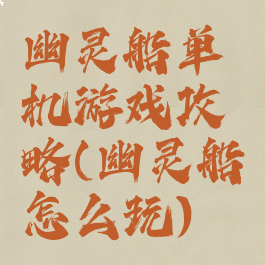 幽灵船单
机游戏攻
略(幽灵船
怎么玩)